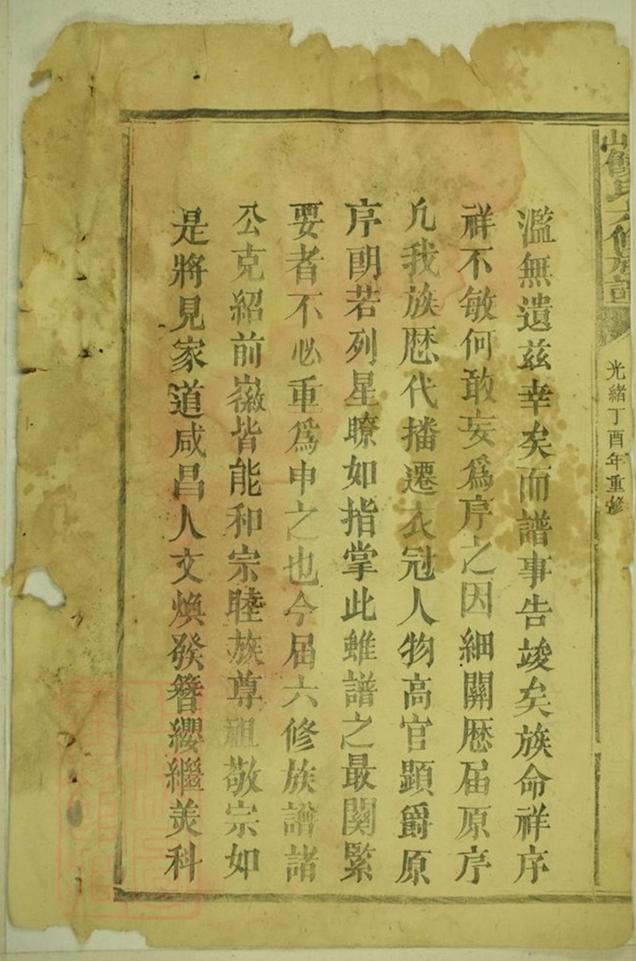 氏六修族譜
光緒丁酉年重修
濫無遺茲幸矣而譜事告竣矣族命祥序
祥不敏何敢妄爲序之因細閱歷屆原序
凡我族歷代播遷衣冠人物高官顯爵原
序朗若列星瞭如指掌此雖譜之最關緊
要者不必重爲申之也今屆六修族譜諸
公克紹前徽皆能和宗睦族尊祖敬宗如
是將見家道咸昌人文煥發簪纓繼美科